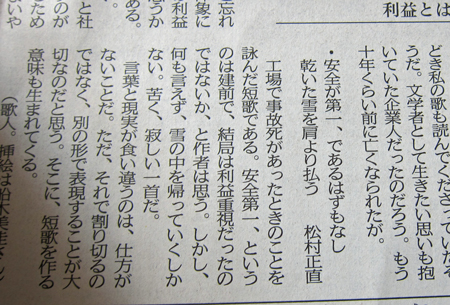 利益とは
どき私の歌も読んでくださっていたそ
うだ。文学者として生きたい思いも抱
いていた企業人だったのだろう。もう
十年くらい前に亡くなられたが。
・安全が第一、であるはずもなし
乾いた雪を肩より払う　松村正直
工場で事故死があったときのことを
詠んだ短歌である。安全第一、という
のは建前で、結局は利益重視だったの
ではないか、と作者は思う。しかし、
何も言えず、雪の中を帰っていくしか
ない。苦く、寂しい一首だ。
言葉と現実が食い違うのは、仕方が
ないことだ。ただ、それで割り切るの
ではなく、別の形で表現することが大
切なのだと思う。そこに、短歌を作る
意味も生まれてくる。
（歌人。挿絵は船木
忘れ
象に
利益
うか
ある。
と社
のが
ため